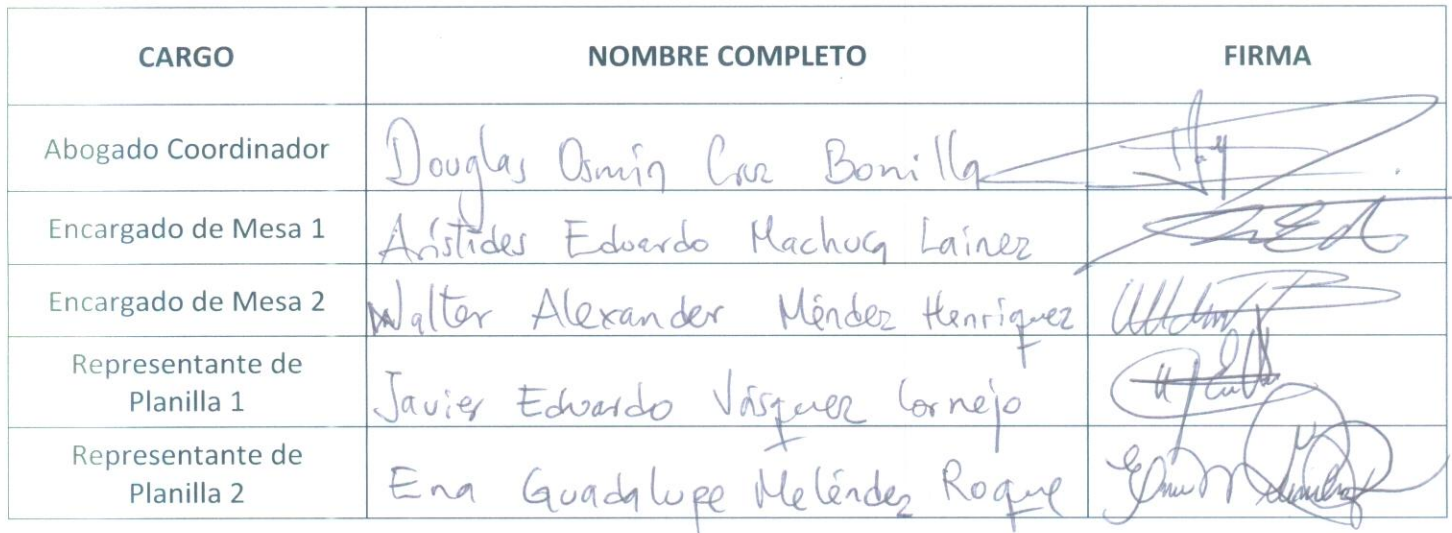 CARGO NOMBRE COMPLETO FIRMA
Abogado Coordinador Douglas Osmín Cruz Bonilla
Encargado de Mesa 1 Arístides Eduardo Machuca Laínez
Encargado de Mesa 2 Walter Alexander Méndez Henríquez
Representante de
Planilla 1 Javier Eduardo Vásquez Cornejo
Representante de
Planilla 2 Ena Guadalupe Meléndez Roque